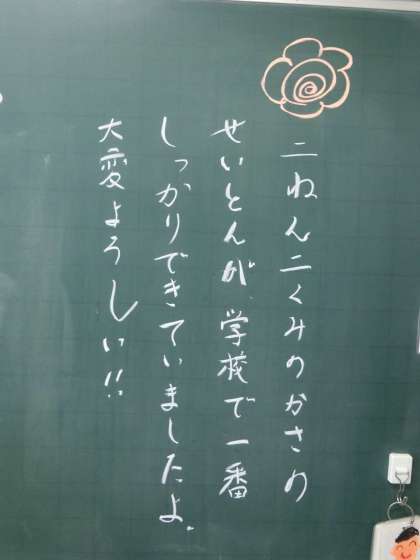 二ねん二くみのかさの
せいとんが、学校で一番
しっかりできていましたよ。
大変よろしい!!